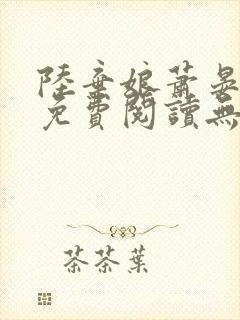 陸棄娘蕭晏
免費閱讀無
茶茶葉